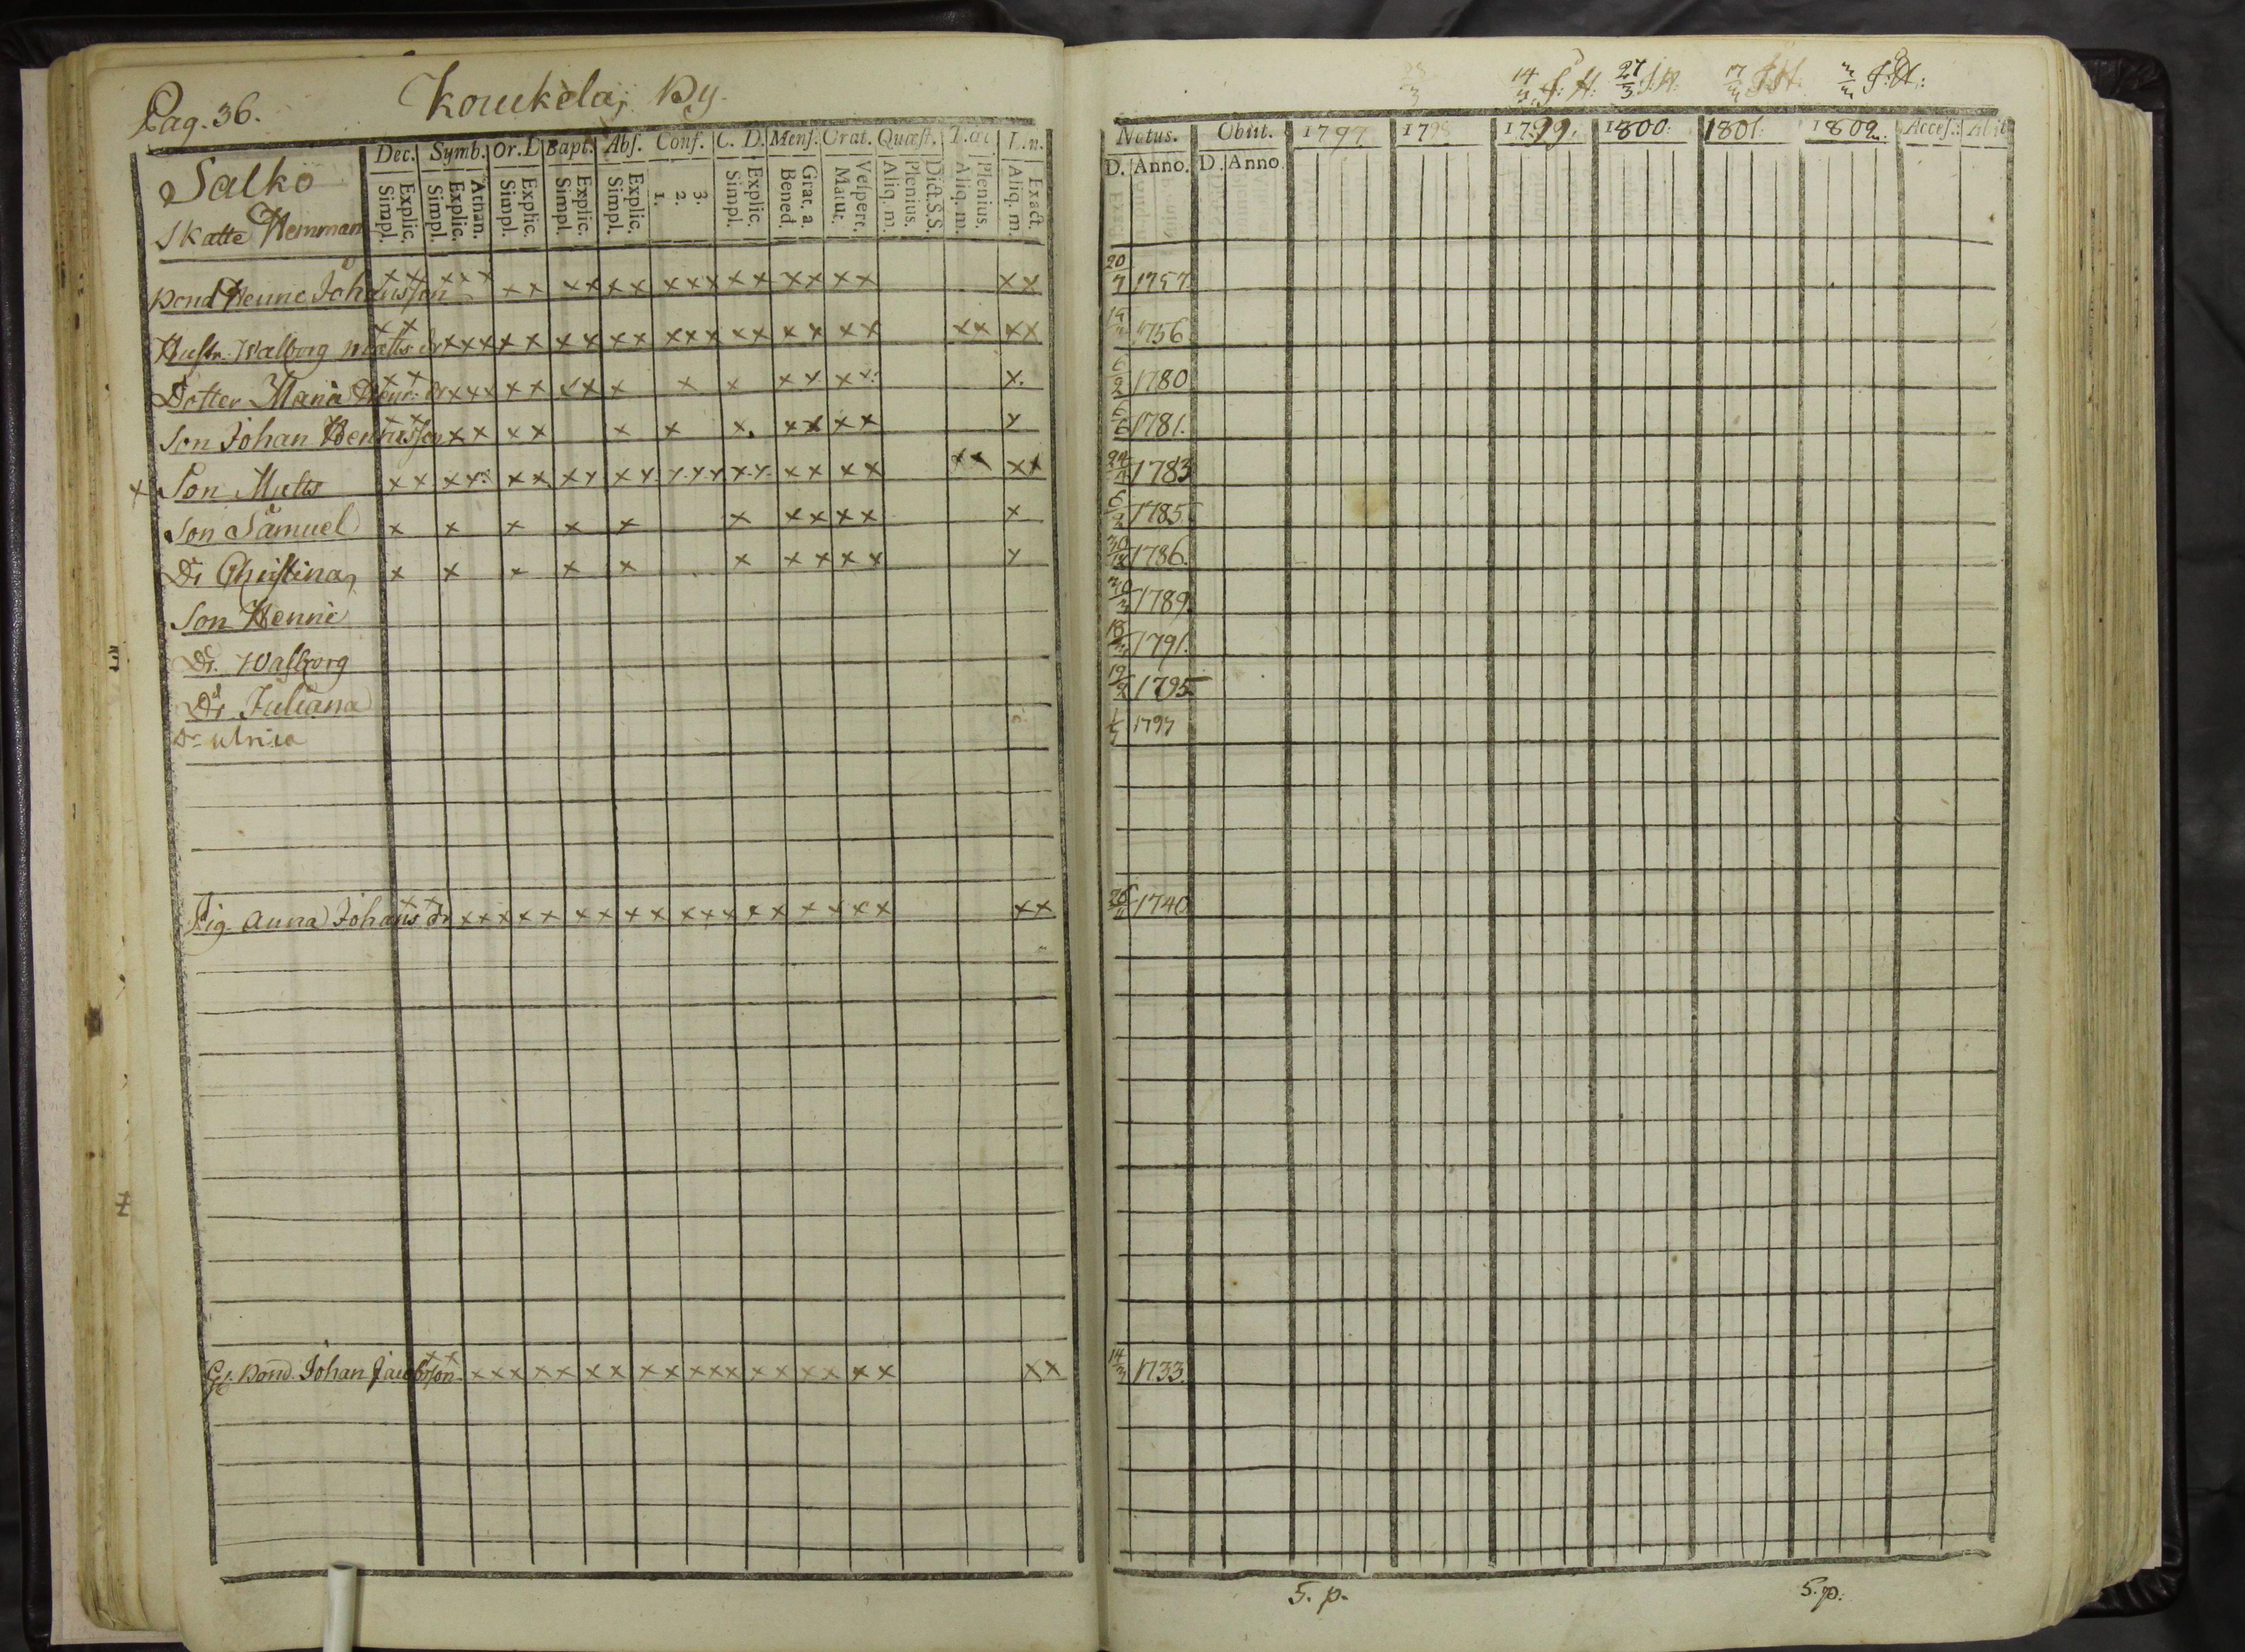 Pag. 36. Koukela, By.
Salko
Skatte Hemman
Dec. Symb. Or. D Bapt. Abs. Conf. C. D. Mens. Orat. Quæst. T.œc. L.n.
Explic. Simpl. Athan. Explic. Simpl. Explic. Simpl. Explic. Simpl. Explic. Simpl. 3. 2. 1. Explic. Simpl. Grat. a. Bened. Vespert. Matut. Dict.S.S. Plenius. Aliq. m. Plenius. Aliq. m. Exact. Aliq. m.
Bond Henric Johansson xx xxx xx xx xx xxx xx xx xx xx
Hustr. Walborg Matts dr xx xxx xx xx xx xxx xx xx xx xx xx
Dotter Maria Henr: dr xx xxx xx xx x x x xx xx x.
Son Johan Henricsson xx xx xx x x x. xx xx x
x Son Matts xx xx xx xx xx xxx xx xx xx xx xx
Son Samuel x x x x x x xx xx x
Dr Christina x x x x x x xx xx x
Son Henric
Dr. Walborg
Dr Juliana
Dr Ulrica
Pig. Anna Johans dr xx xxx xx xx xx xxx xx xx xx xx
Gl. Bond. Johan Jacobsson xx xxx xx xx xx xxx xx xx xx xx
14/3 J: H: 27/3 J: H: J: H: J: H:
Natus. Obiit. 1797 1798 1799. 1800. 1801. 1802. Acces. Abit
D. Anno. D. Anno.
20/7 1757.
1756
6/2 1780
1781.
24/ 1783
6/ 1785.
30/ 1786.
1789.
18/ 1791.
19/ 1795
1797
26/ 1740.
14/3 1733.
5. p. 5. p.